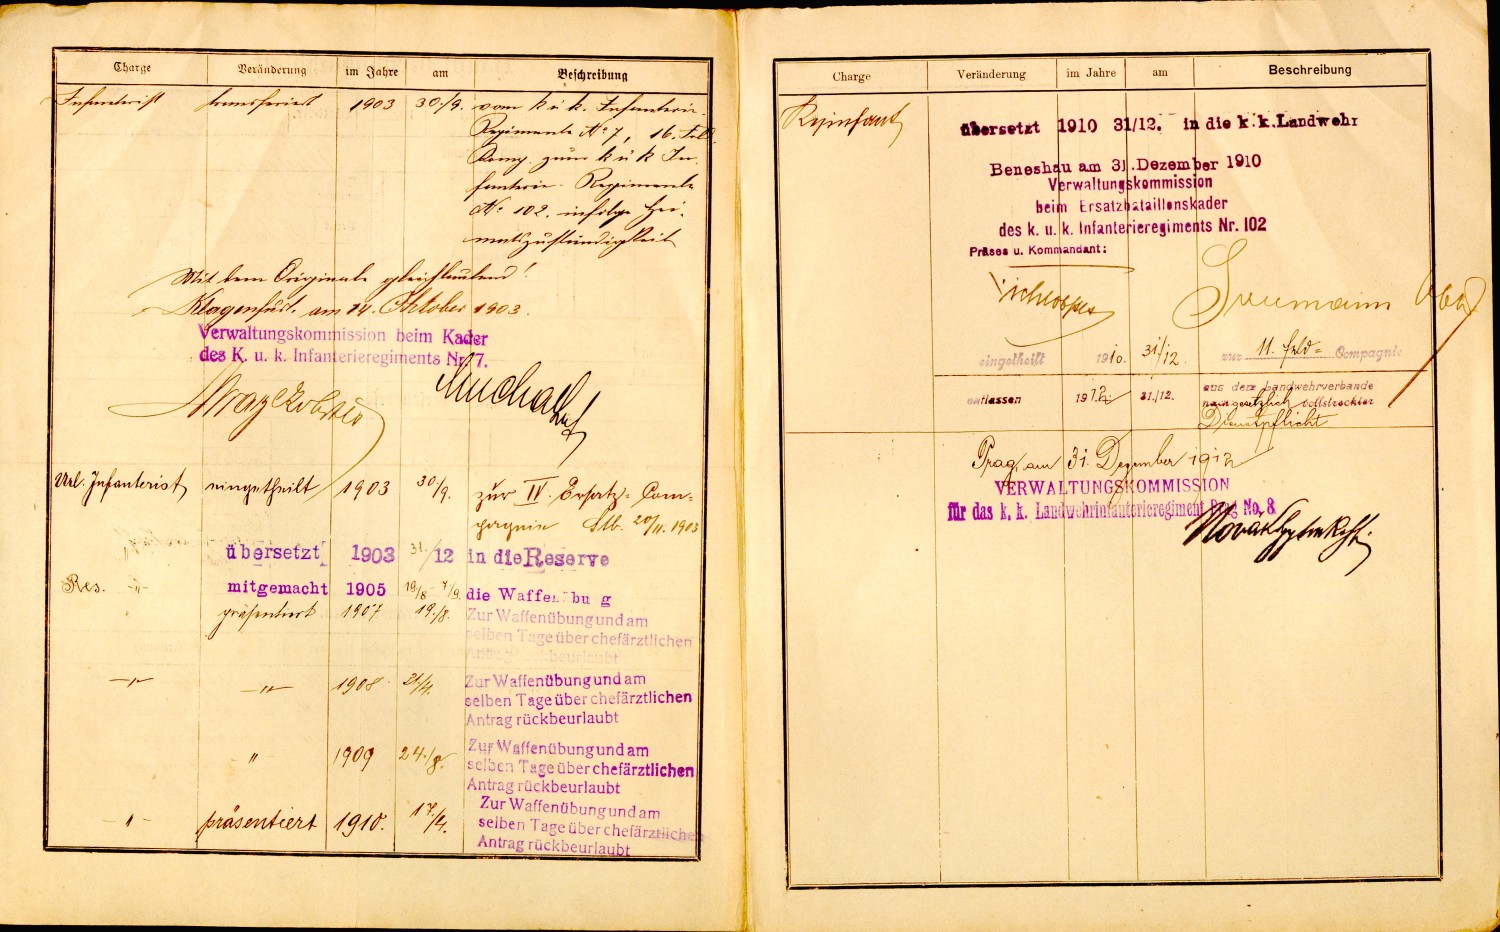 Charge Veränderung im Jahre am Beschreibung
Infanterist transferiert 1903 30./9. vom k. u. k. Infanterie-
Regimente No 7, 16. Feld
Comp. zum k. u. k. In-
fanterie-Regimente
No 102. infolge Hei-
matszuständigkeit
Mit dem Originale gleichlautend!
Klagenfurt, am 14. Oktober 1903.
Verwaltungskommission beim Kader
des K. u. k. Infanterieregiments Nr. 7.
Url. Infanterist eingetheilt 1903 30./9. zur IV. Ersatz-Com-
pagnie 20/11. 1903
übersetzt 1903 31./12 in die Reserve
Res. -"- mitgemacht 1905 19/8 - 7/9. die Waffenbu g
präsentiert 1907 19./8. Zur Waffenübung und am
selben Tage über chefärztlichen
Antrag rückbeurlaubt
-"- -"- 1908 21/4. Zur Waffenübung und am
selben Tage über chefärztlichen
Antrag rückbeurlaubt
" 1909 24./8. Zur Waffenübung und am
selben Tage über chefärztlichen
Antrag rückbeurlaubt
-"- präsentiert 1910. 17/4. Zur Waffenübung und am
selben Tage über chefärztlichen
Antrag rückbeurlaubt
Charge Veränderung im Jahre am Beschreibung
übersetzt 1910 31/12. in die k.k. Landwehr
Beneshau am 31. Dezember 1910
Verwaltungskommission
beim Ersatzbataillonskader
des k. u. k. Infanterieregiments Nr. 102
Präses u. Kommandant:
eingetheilt 1910. 31/12. zur 11. Feld= Compagnie
entlassen 1912. 31./12. aus dem Landwehrverbande
nach gesetzlich vollstreckter
Dienstpflicht
Prag, am 31. Dezember 1912
VERWALTUNGSKOMMISSION
für das k. k. Landwehrinfanterieregiment Prag No. 8